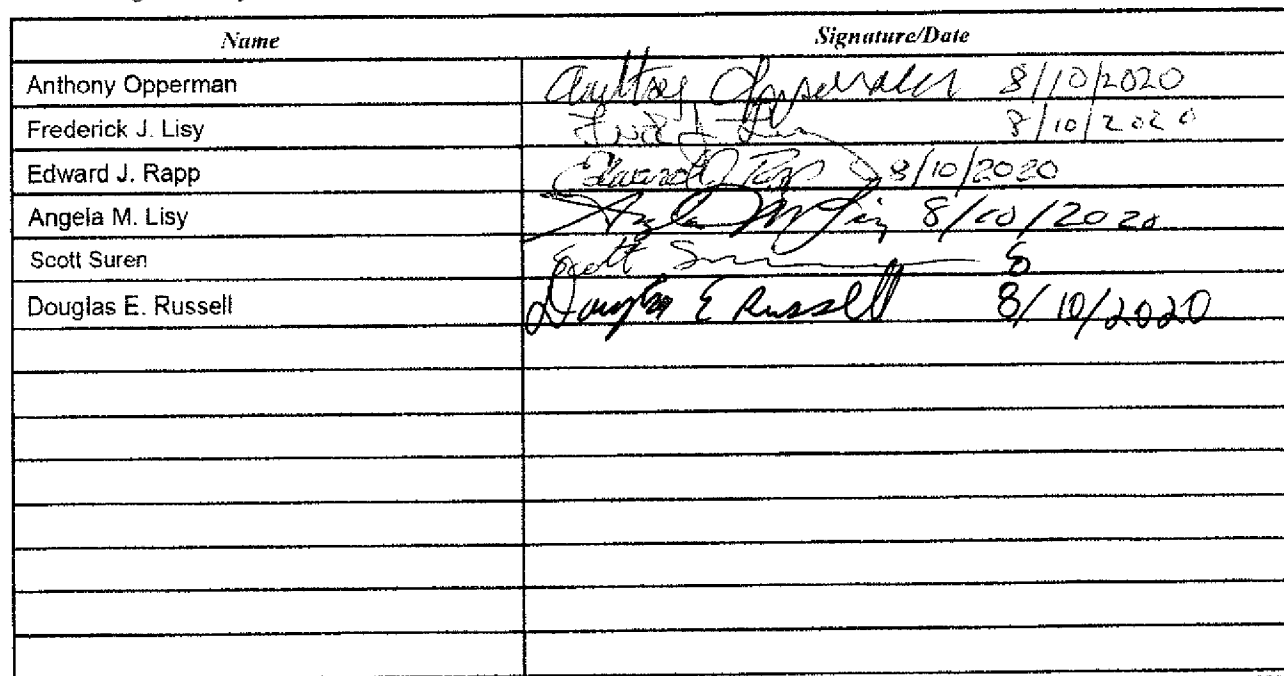 Name Signature/Date
Anthony Opperman Anthony Opperman 8/10/2020
Frederick J. Lisy 8/10/2020
Edward J. Rapp Edward J Rapp 8/10/2020
Angela M. Lisy Angela M Lisy 8/10/2020
Scott Suren Scott
Douglas E. Russell Douglas E Russell 8/10/2020